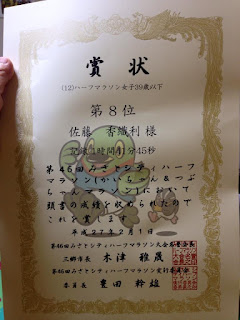 賞状
(12)ハーフマラソン女子39歳以下
第8位
佐藤 香織利 様
記録 1時間41分45秒
第46回みさとシティハーフ
マラソン(かいちゃん&つぶ
ちゃんマラソン)において
頭書の成績を収められたので
これを賞します
平成27年2月1日
第46回みさとシティハーフマラソン大会名誉会長
三郷市長 木津 雅晟
第46回みさとシティハーフマラソン実行委員会
委員長 豊田 幹雄